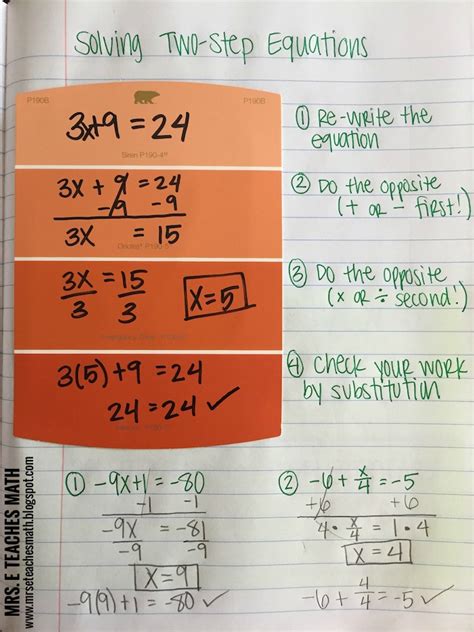 Solving Two-Step Equations
P190B
P190B
3x+9 = 24
3x + 9 = 24
-9 -9
3x = 15
3x = 15
3 3
x=5
3(5)+9 = 24
24 = 24 ✓
① Re-write the
equation
② Do the opposite
(+ or - first!)
③ Do the opposite
(x or ÷ second!)
④ Check your work
by substitution
① -9x+1 = -80
-1 -1
-9x = -81
-9 -9
x=9
-9(9)+1 = -80 ✓
② -6 + x/4 = -5
+6 +6
4 • x/4 = 1 • 4
x = 4
-6 + 4/4 = -5 ✓
MRS. E TEACHES MATH
www.mrseteachesmath.blogspot.com